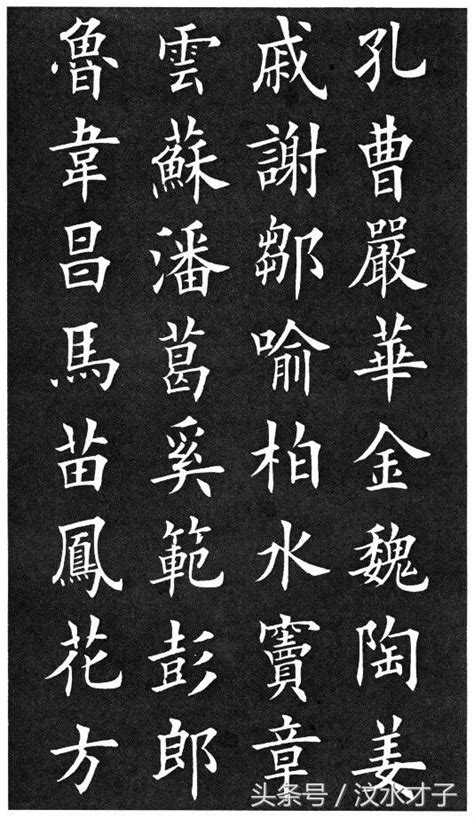 孔曹嚴華金魏陶姜
戚謝鄒喻柏水竇章
雲蘇潘葛奚範彭郎
魯韋昌馬苗鳳花方
头条号 / 汶水才子